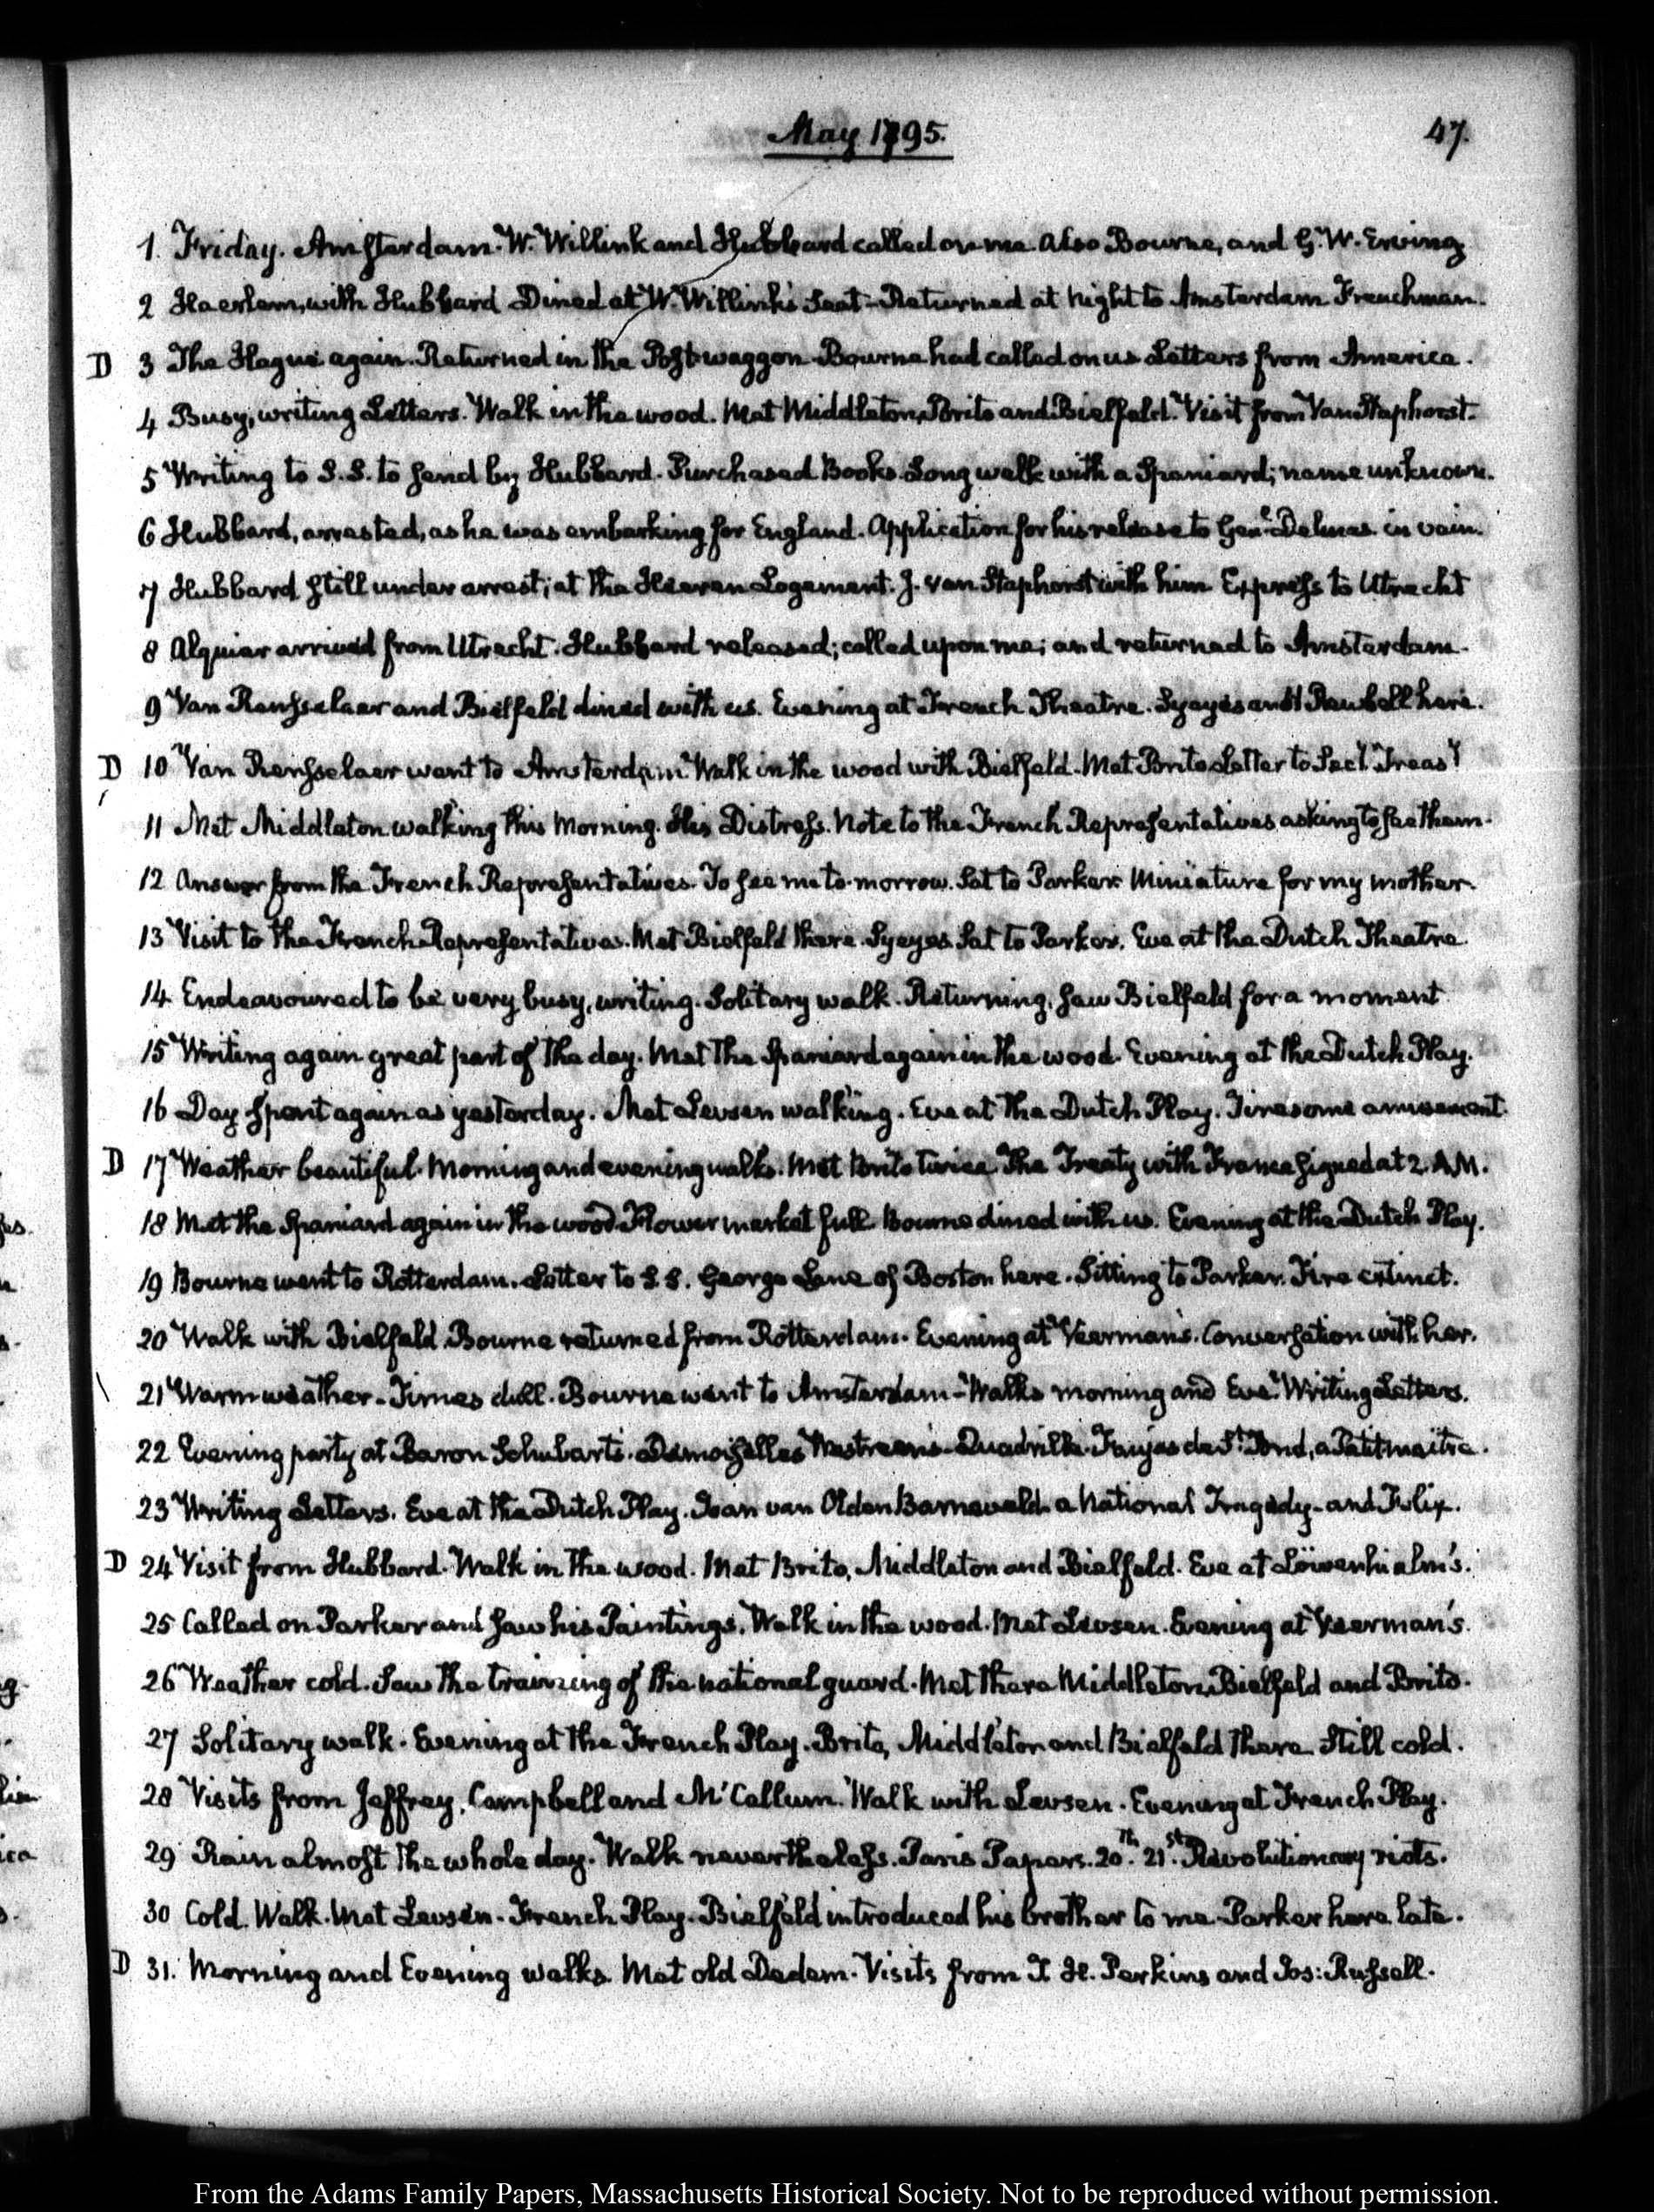 May 1795.
47.
1. Friday. Amsterdam. W. Willink and Hubbard called on me. Also Bourne, and G. W. Erving.
2 Haerlem, with Hubbard Dined at W. Willink's Seat - Returned at night to Amsterdam Frenchman.
D 3 The Hague again. Returned in the Post-waggon. Bourne had called on us. Letters from America.
4 Busy, writing Letters. Walk in the wood. Met Middleton, Brito and Bielfeld. Visit from Van Staphorst.
5 Writing to S.S. to send by Hubbard. Purchased Books. Long walk with a Spaniard; name unknown.
6 Hubbard, arrested, as he was embarking for England. Application for his release to Genl. Delmas. in vain.
7 Hubbard still under arrest; at the Heeren Logement. J. van Staphorst with him Express to Utrecht
8 Alquier arrived from Utrecht. Hubbard released; called upon me; and returned to Amsterdam.
9 Van Rensselaer and Bielfeld dined with us. Evening at French Theatre. Syeyes and Rewbell here.
D 10 Van Rensselaer went to Amsterdam. Walk in the wood with Bielfeld. Met Brito. Letter to Secy. Treasy
11 Met Middleton walking this Morning. His Distress. Note to the French Representatives asking to see them.
12 Answer from the French Representatives. To see me to-morrow. Sat to Parker. Miniature for my mother.
13 Visit to the French Representatives. Met Bielfeld there. Syeyes. Sat to Parker. Eve at the Dutch Theatre.
14 Endeavoured to be very busy, writing. Solitary walk. Returning, saw Bielfeld for a moment
15 Writing again great part of the day. Met the Spaniard again in the wood. Evening at the Dutch Play.
16 Day spent again as yesterday. Met Levsen walking. Eve at the Dutch Play. Tiresome amusement.
D 17 Weather beautiful. Morning and evening walks. Met Brito twice. The Treaty with France signed at 2. A.M.
18 Met the Spaniard again in the wood. Flower market full. Bourne dined with us. Evening at the Dutch Play.
19 Bourne went to Rotterdam. Letter to S.S. George Lane of Boston here. Sitting to Parker. Fire extinct.
20 Walk with Bielfeld. Bourne returned from Rotterdam. Evening at Veerman's. Conversation with her.
21 Warm weather. Times dull. Bourne went to Amsterdam - Walks morning and Eve. Writing Letters.
22 Evening party at Baron Schubart's. Demoiselles Westreen's. Quadrille. Faujas de St. Fond, a Petit maitre.
23 Writing Letters. Eve at the Dutch Play. Joan van Olden Barneveld. a National Tragedy - and Felix.
D 24 Visit from Hubbard. Walk in the wood. Met Brito, Middleton and Bielfeld. Eve at Löwenhialm's.
25 Called on Parker and saw his Paintings. Walk in the wood. Met Levsen. Evening at Veerman's.
26 Weather cold. Saw the training of the national guard. Met there Middleton, Bielfeld and Brito.
27 Solitary walk. Evening at the French Play. Brito, Middleton and Bielfeld there. Still cold.
28 Visits from Jeffrey, Campbell and McCallum. Walk with Levsen. Evening at French Play.
29 Rain almost the whole day. Walk nevertheless. Paris Papers. 20th. 21st. Revolutionary riots.
30 Cold. Walk. Met Levsen. French Play. Bielfeld introduced his brother to me. Parker here late.
D 31. Morning and Evening walks. Met old Dedem. Visits from T. H. Perkins and Jos: Russell.
From the Adams Family Papers, Massachusetts Historical Society. Not to be reproduced without permission.